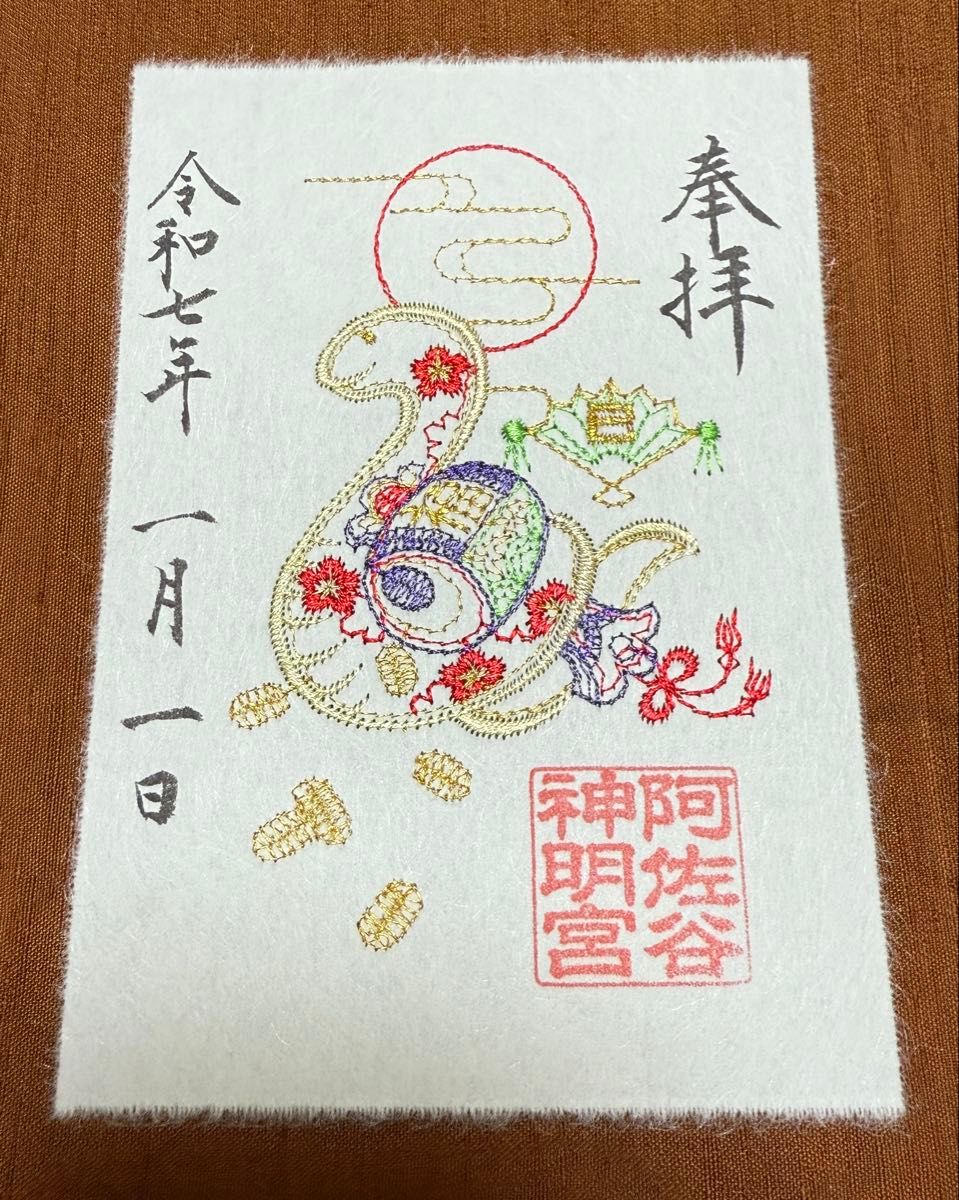 奉拝
阿佐谷
神明宮
令和七年 一月 一日